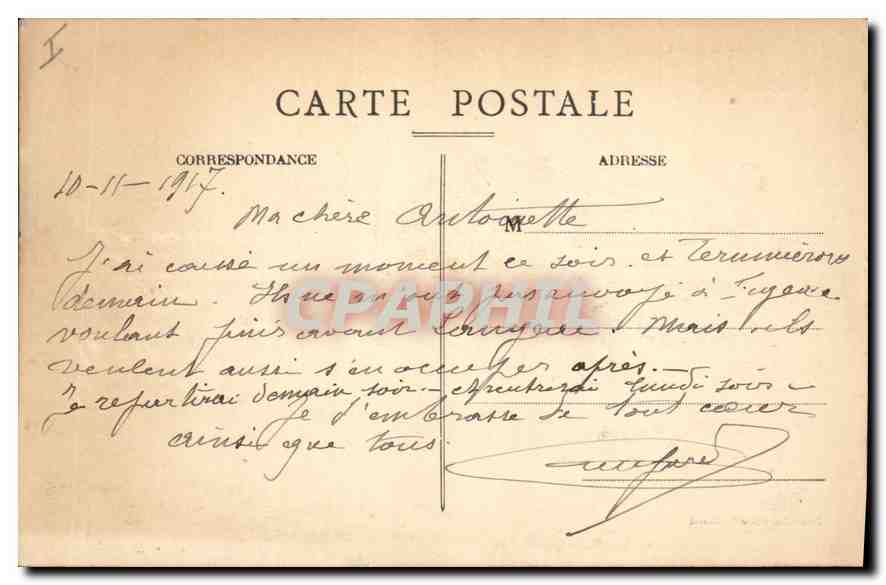 I
CARTE POSTALE
CORRESPONDANCE
ADRESSE
10-11-1917.
Ma chère Antoinette
M
J'ai causé un moment ce soir et Terminerons
demain. Ils ne m'ont pas envoyé à
voulant finir avant Mais ils
veulent aussi s'en occuper après.-
Je repartirai demain soir - et rentrerai lundi soir -
Je t'embrasse de tout cœur
ainsi que tous.
CPAPHIL